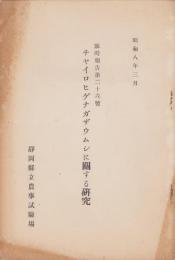 昭和八年三月
臨時報告第二十六號
チャイロヒゲナガザウムシに關する研究
靜岡縣立農事試驗場